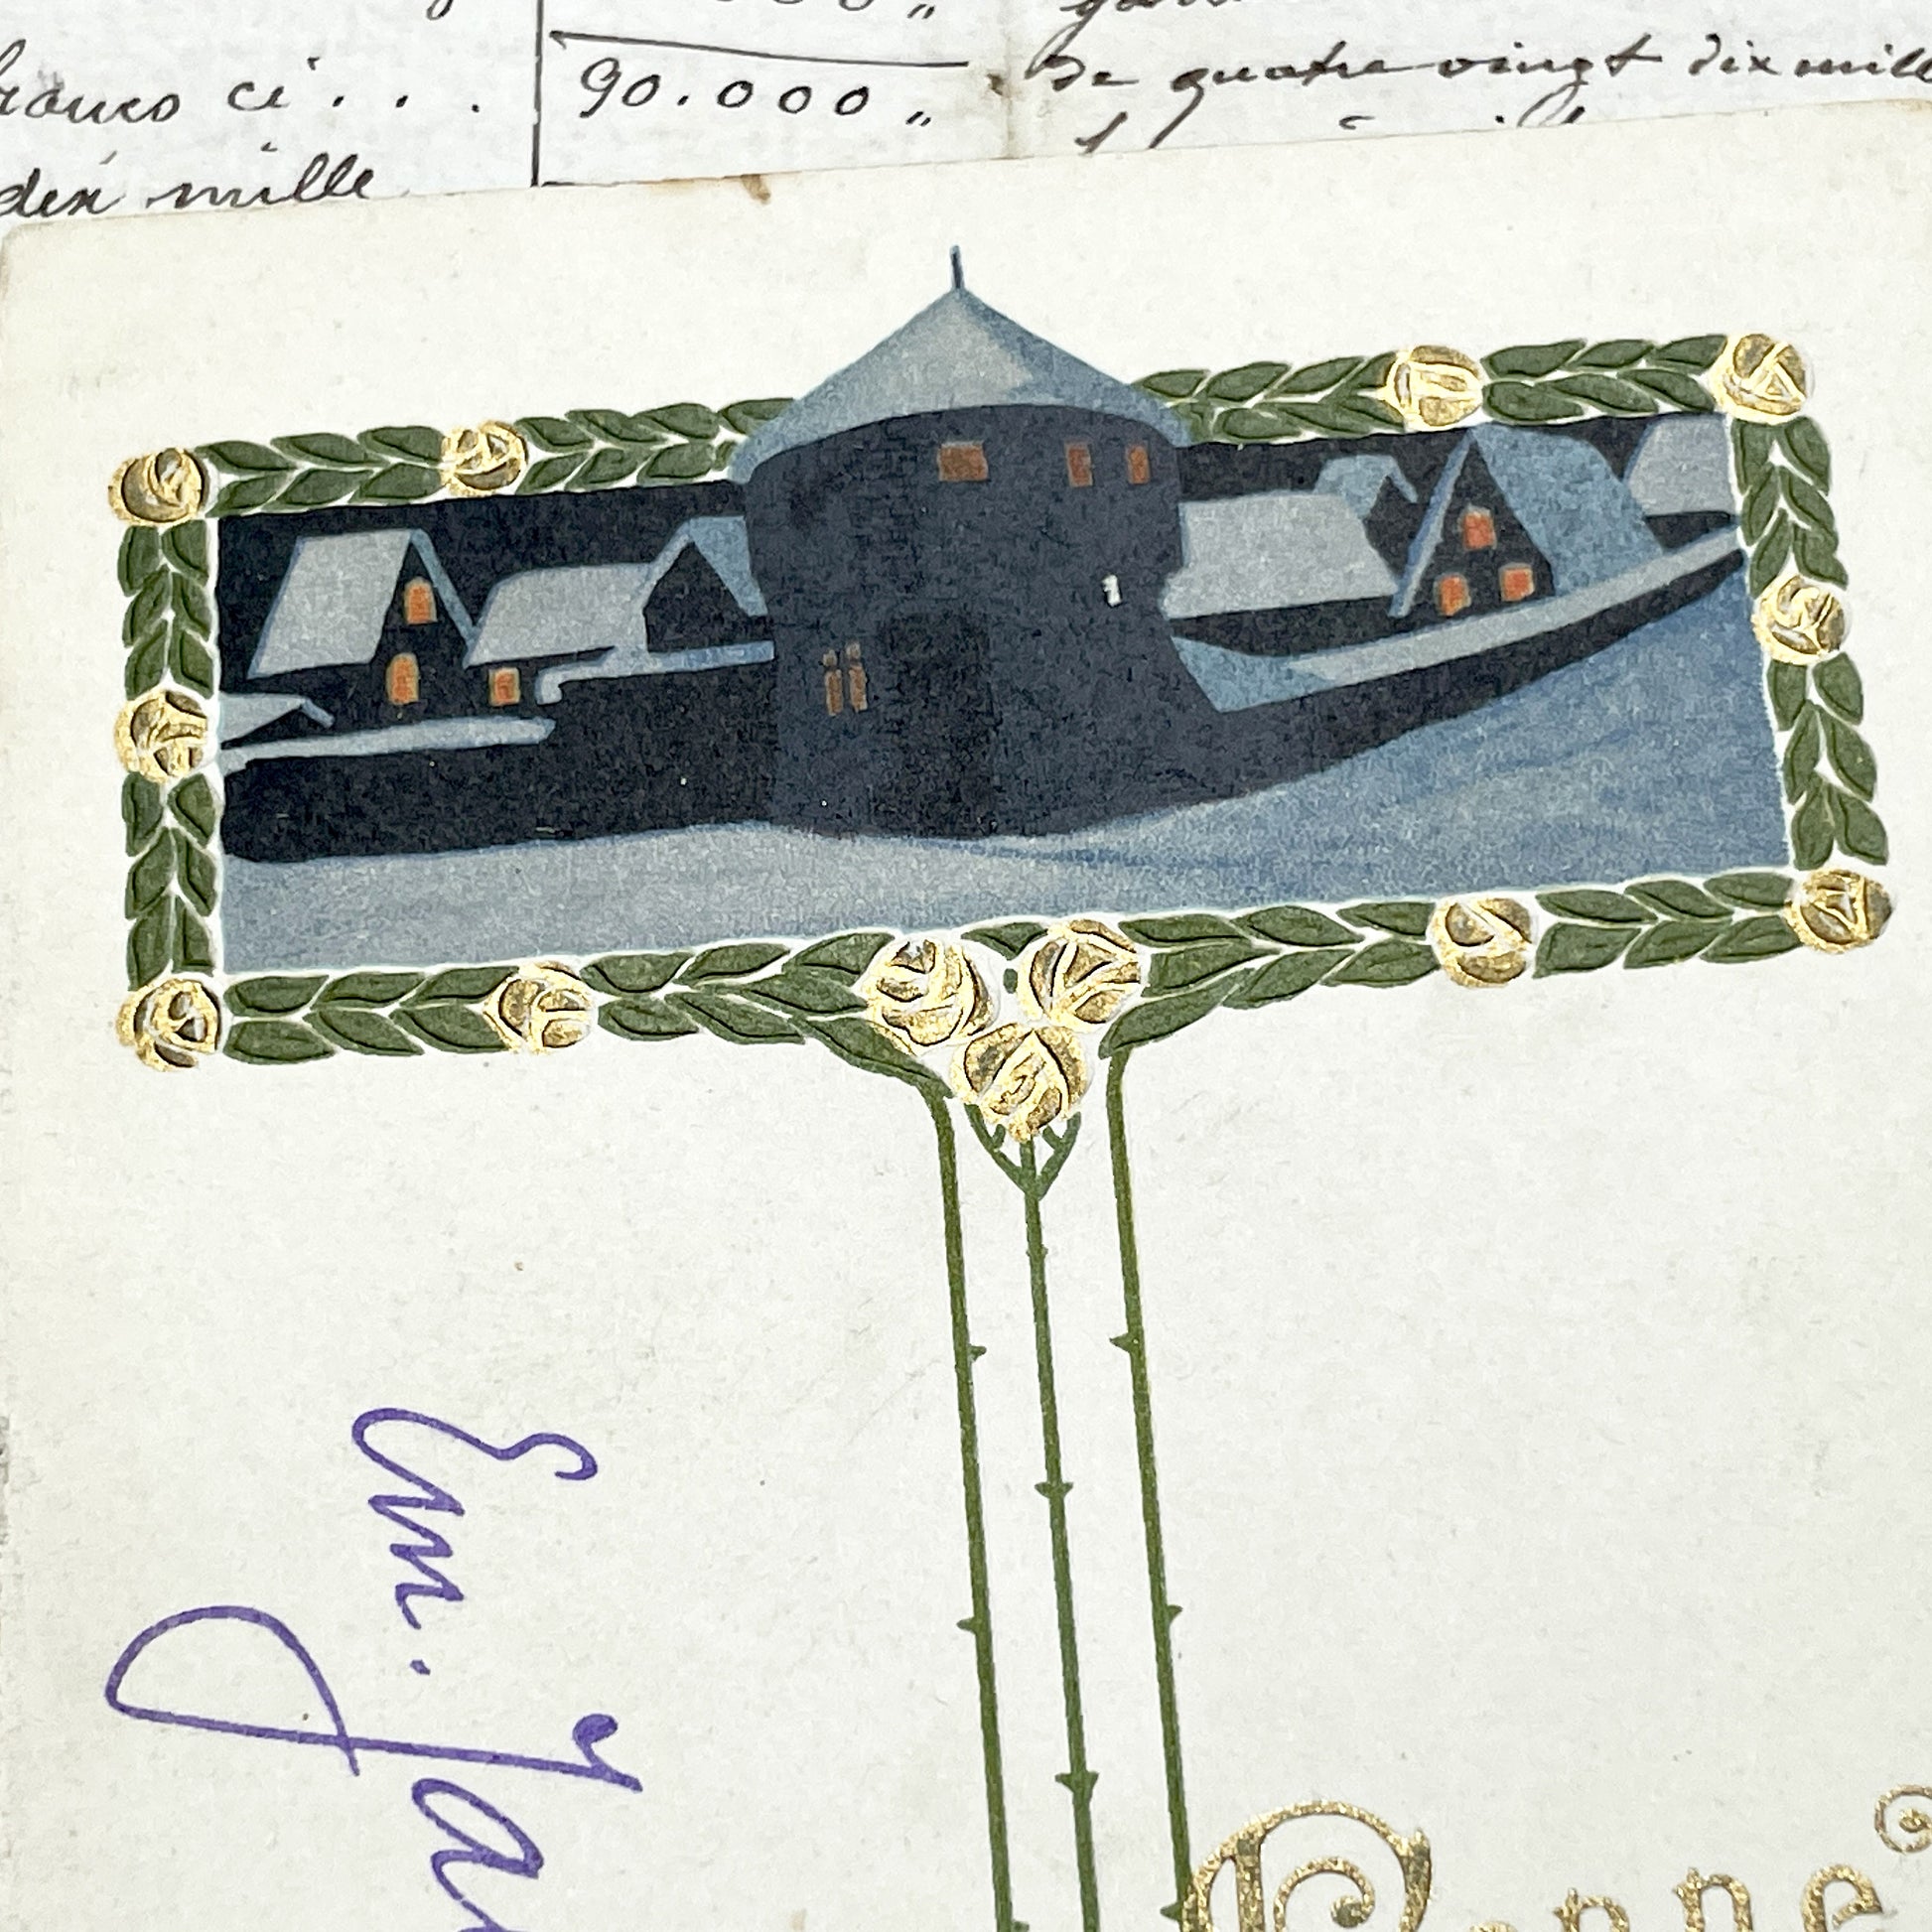 000 "
francs ci . . .
90.000 "
De quatre vingt dix mille
dix mille
Em. Ja
Bonne